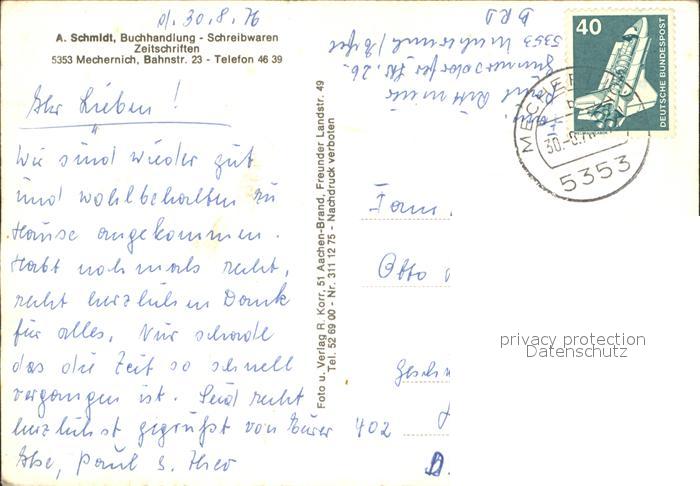 d. 30.8.76
A. Schmidt, Buchhandlung - Schreibwaren
Zeitschriften
5353 Mechernich, Bahnstr. 23 - Telefon 46 39
Ihr Lieben!
Wir sind wieder gut
und wohlbehalten zu
Hause angekommen.
Habt nochmals recht,
recht herzlichen Dank
für alles. Nur schade
das die Zeit so schnell
vergangen ist. Seid recht
herzlichst gegrüßt von Eurer
Paul u. Theo
Foto u. Verlag R. Korr, 51 Aachen-Brand, Freunder Landstr. 49
Tel. 52 69 00 - Nr. 311 12 75 - Nachdruck verboten
Paul
5353 Mechernich/Eifel
BRD
40
DEUTSCHE BUNDESPOST
MECHER
30.-8.
5353
Fam.
Otto
402
D.
privacy protection
Datenschutz